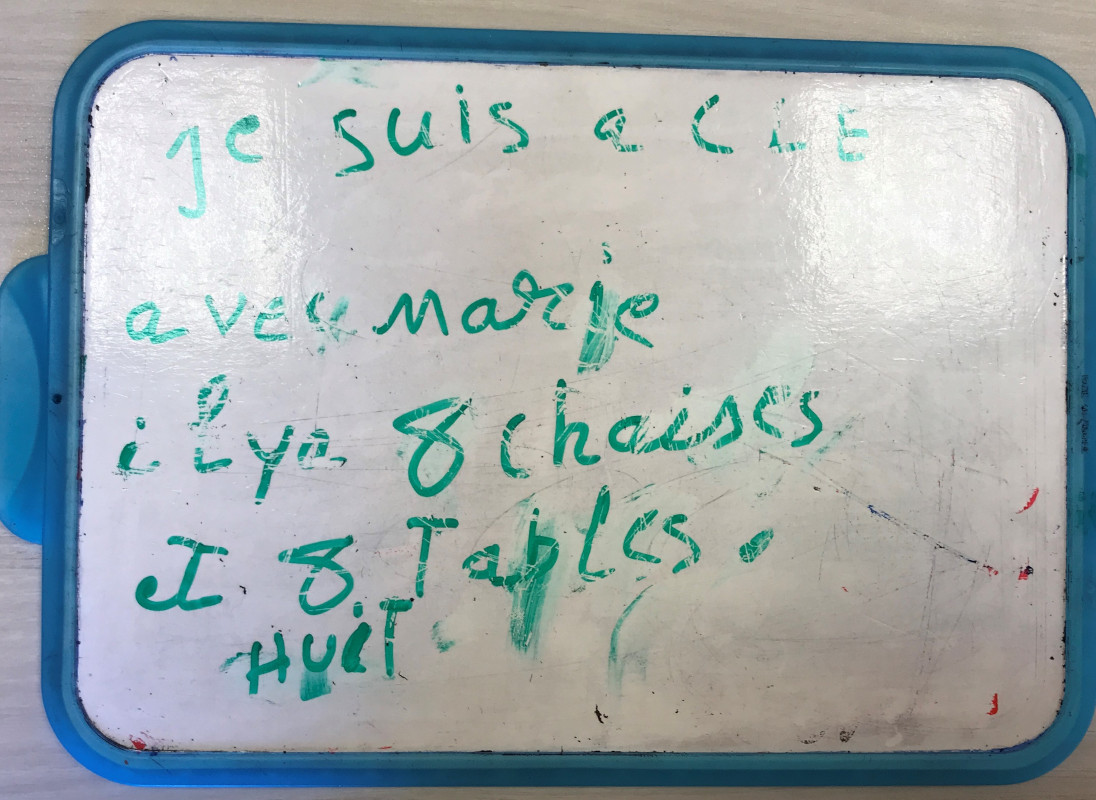 je suis a CLE
avec Marie
il ya 8 chaises
eT 8 Tables.
HUiT